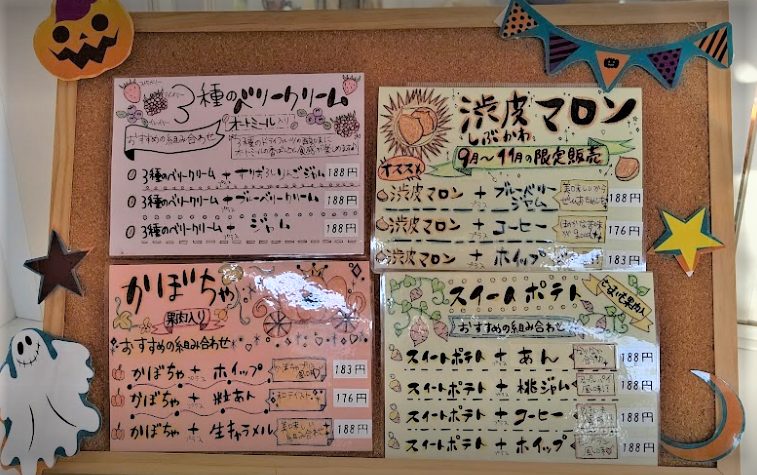 3種のベリークリーム
オートミール入り
おすすめの組み合わせ
3種のベリークリーム + すりおろしりんごジャム 188円
3種のベリークリーム + ブルーベリークリーム 188円
3種のベリークリーム + ジャム 188円
渋皮マロン
しぶかわ
9月〜11月の限定販売
オススメ
渋皮マロン + ブルーベリージャム 188円
渋皮マロン + コーヒー 176円
渋皮マロン + ホイップ 183円
かぼちゃ
果肉入り
おすすめの組み合わせ
かぼちゃ + ホイップ 183円
かぼちゃ + 粒あん 176円
かぼちゃ + 生キャラメル 188円
スイートポテト
さつまいも果肉入り
おすすめの組み合わせ
スイートポテト + あん 188円
スイートポテト + 桃ジャム 188円
スイートポテト + コーヒー 188円
スイートポテト + ホイップ 188円